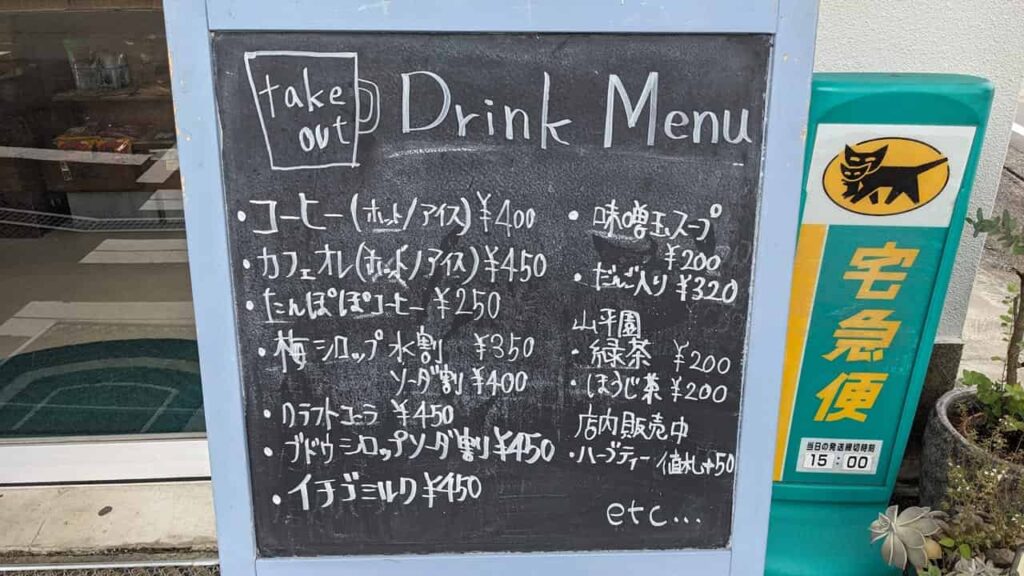 take out
Drink Menu
・コーヒー(ホット/アイス)¥400
・カフェオレ(ホット/アイス)¥450
・たんぽぽコーヒー ¥250
・梅シロップ 水割 ¥350
ソーダ割 ¥400
・クラフトコーラ ¥450
・ブドウシロップソーダ割¥450
・イチゴミルク ¥450
・味噌玉スープ
¥200
・だんご入り ¥320
山平園
・緑茶 ¥200
・ほうじ茶 ¥200
店内販売中
・ハーブティー 値札+50
etc...
宅急便
当日の発送締切時刻
15:00